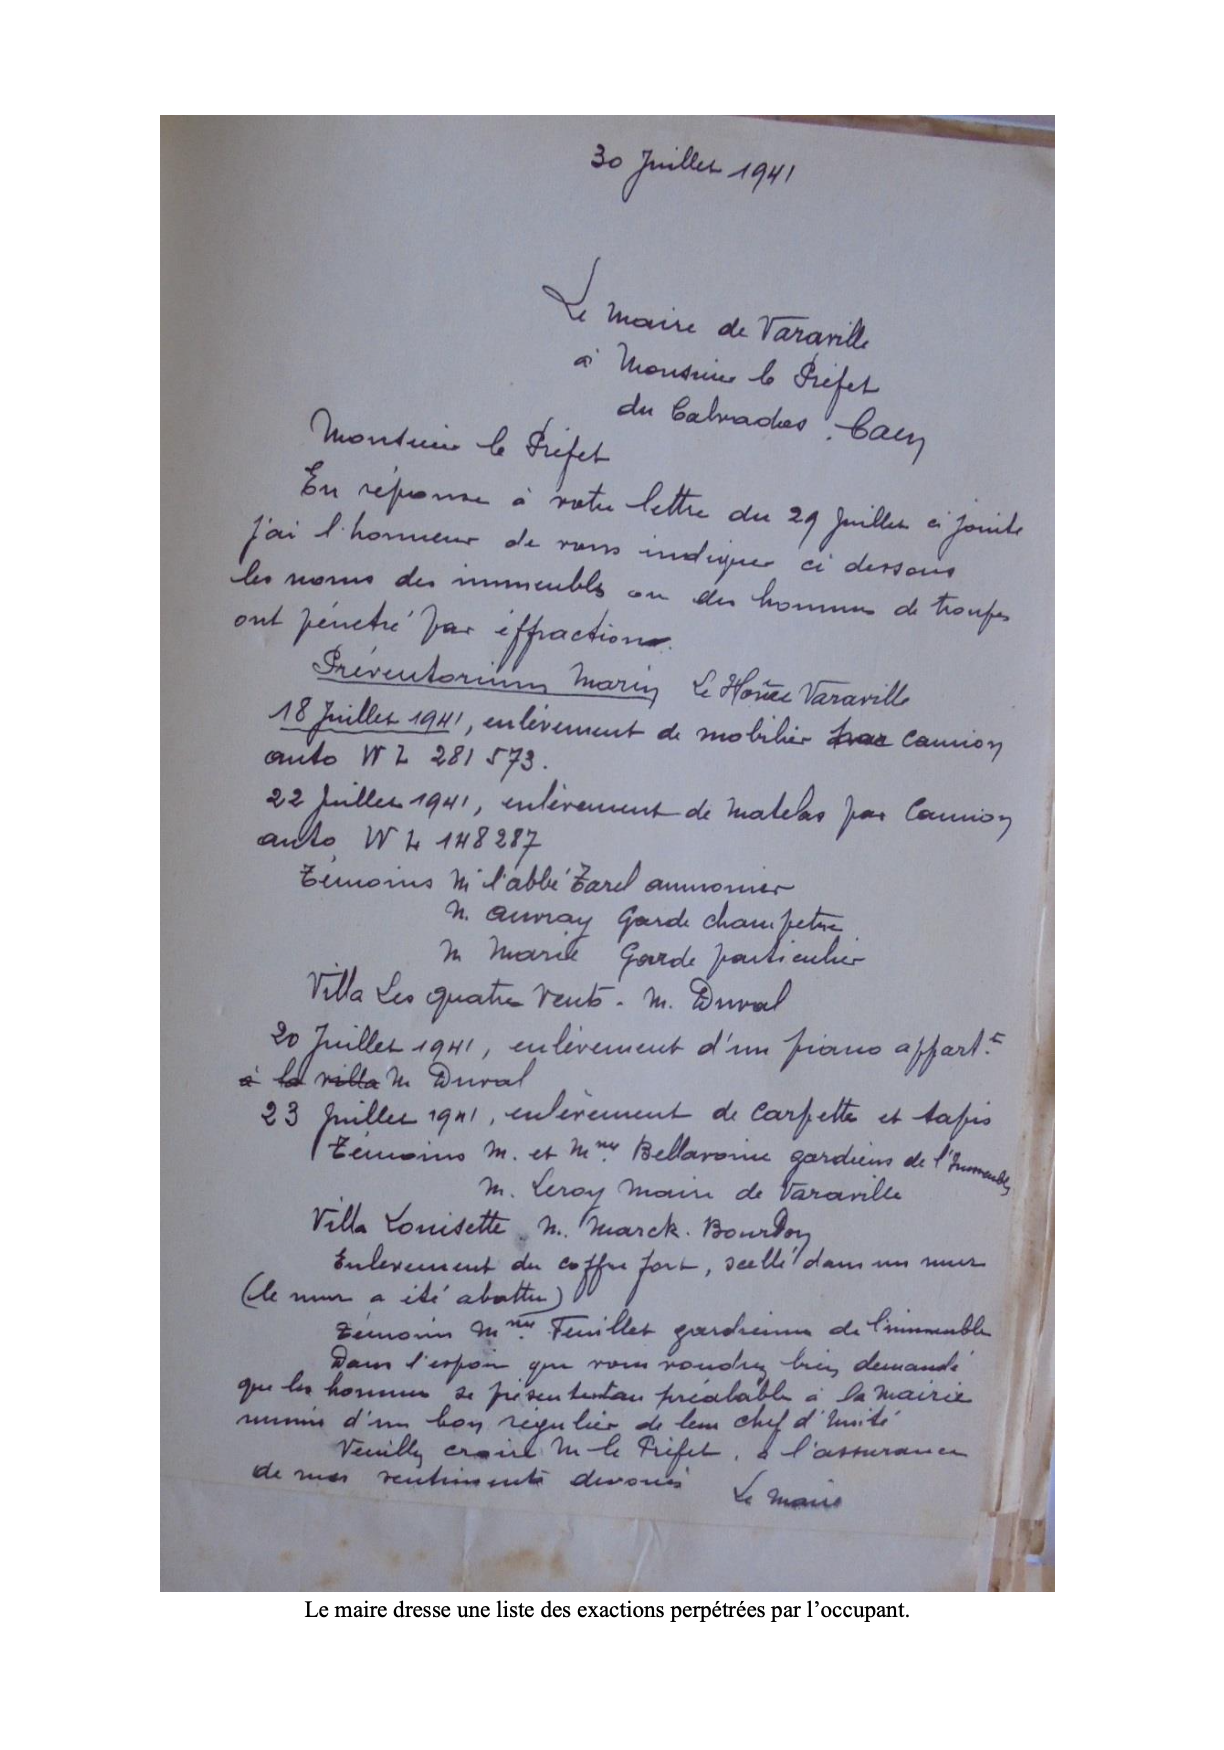 30 Juillet 1941
Le Maire de Varaville
à Monsieur le Préfet
du Calvados. Caen
Monsieur le Préfet
En réponse à votre lettre du 29 Juillet ci jointe
j'ai l'honneur de vous indiquer ci dessous
les noms des immeubles ou des hommes de troupes
ont pénétré par effraction.
Préventorium Marin Le Hôme Varaville
18 Juillet 1941, enlèvement de mobilier par Camion
auto WL 281 573.
22 Juillet 1941, enlèvement de Matelas par Camion
auto WL 148287
Témoins M l'abbé aumonier
M. Auvray Garde champetre
M Marie Garde particulier
Villa Les quatre Vents - M. Duval
20 Juillet 1941, enlèvement d'un piano appart.t
à la villa M Duval
23 Juillet 1941, enlèvement de Carpette et tapis
Témoins M. et Mme Bellavoine gardiens de l'Immeuble
M. Leroy Maire de Varaville
Villa Louisette. M. Marck. Bourdon
Enlevement du coffre fort, scellé dans un mur
(le mur a été abattu)
Témoin Mme Feuillet gardienne de l'immeuble
Dans l'espoir que vous voudrez bien demandé
que les hommes se présentent au préalable à la Mairie
munis d'un bon régulier de leur chef d'Unité
Veuillez croire M le Préfet, à l'assurance
de mes sentiments devoués
Le Maire
Le maire dresse une liste des exactions perpétrées par l’occupant.